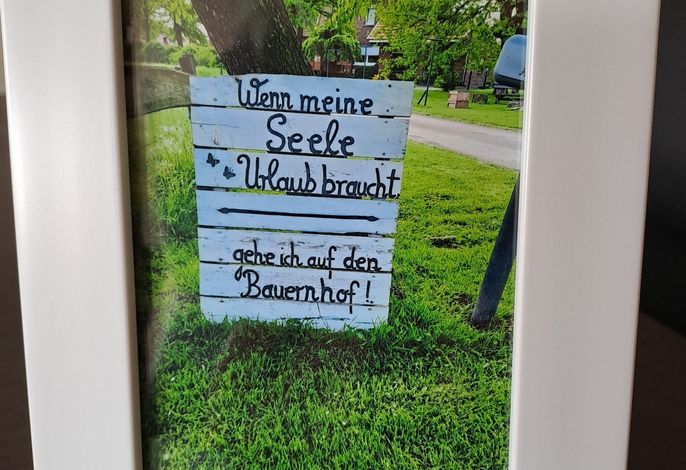 Wenn meine
Seele
Urlaub braucht,
gehe ich auf den
Bauernhof!